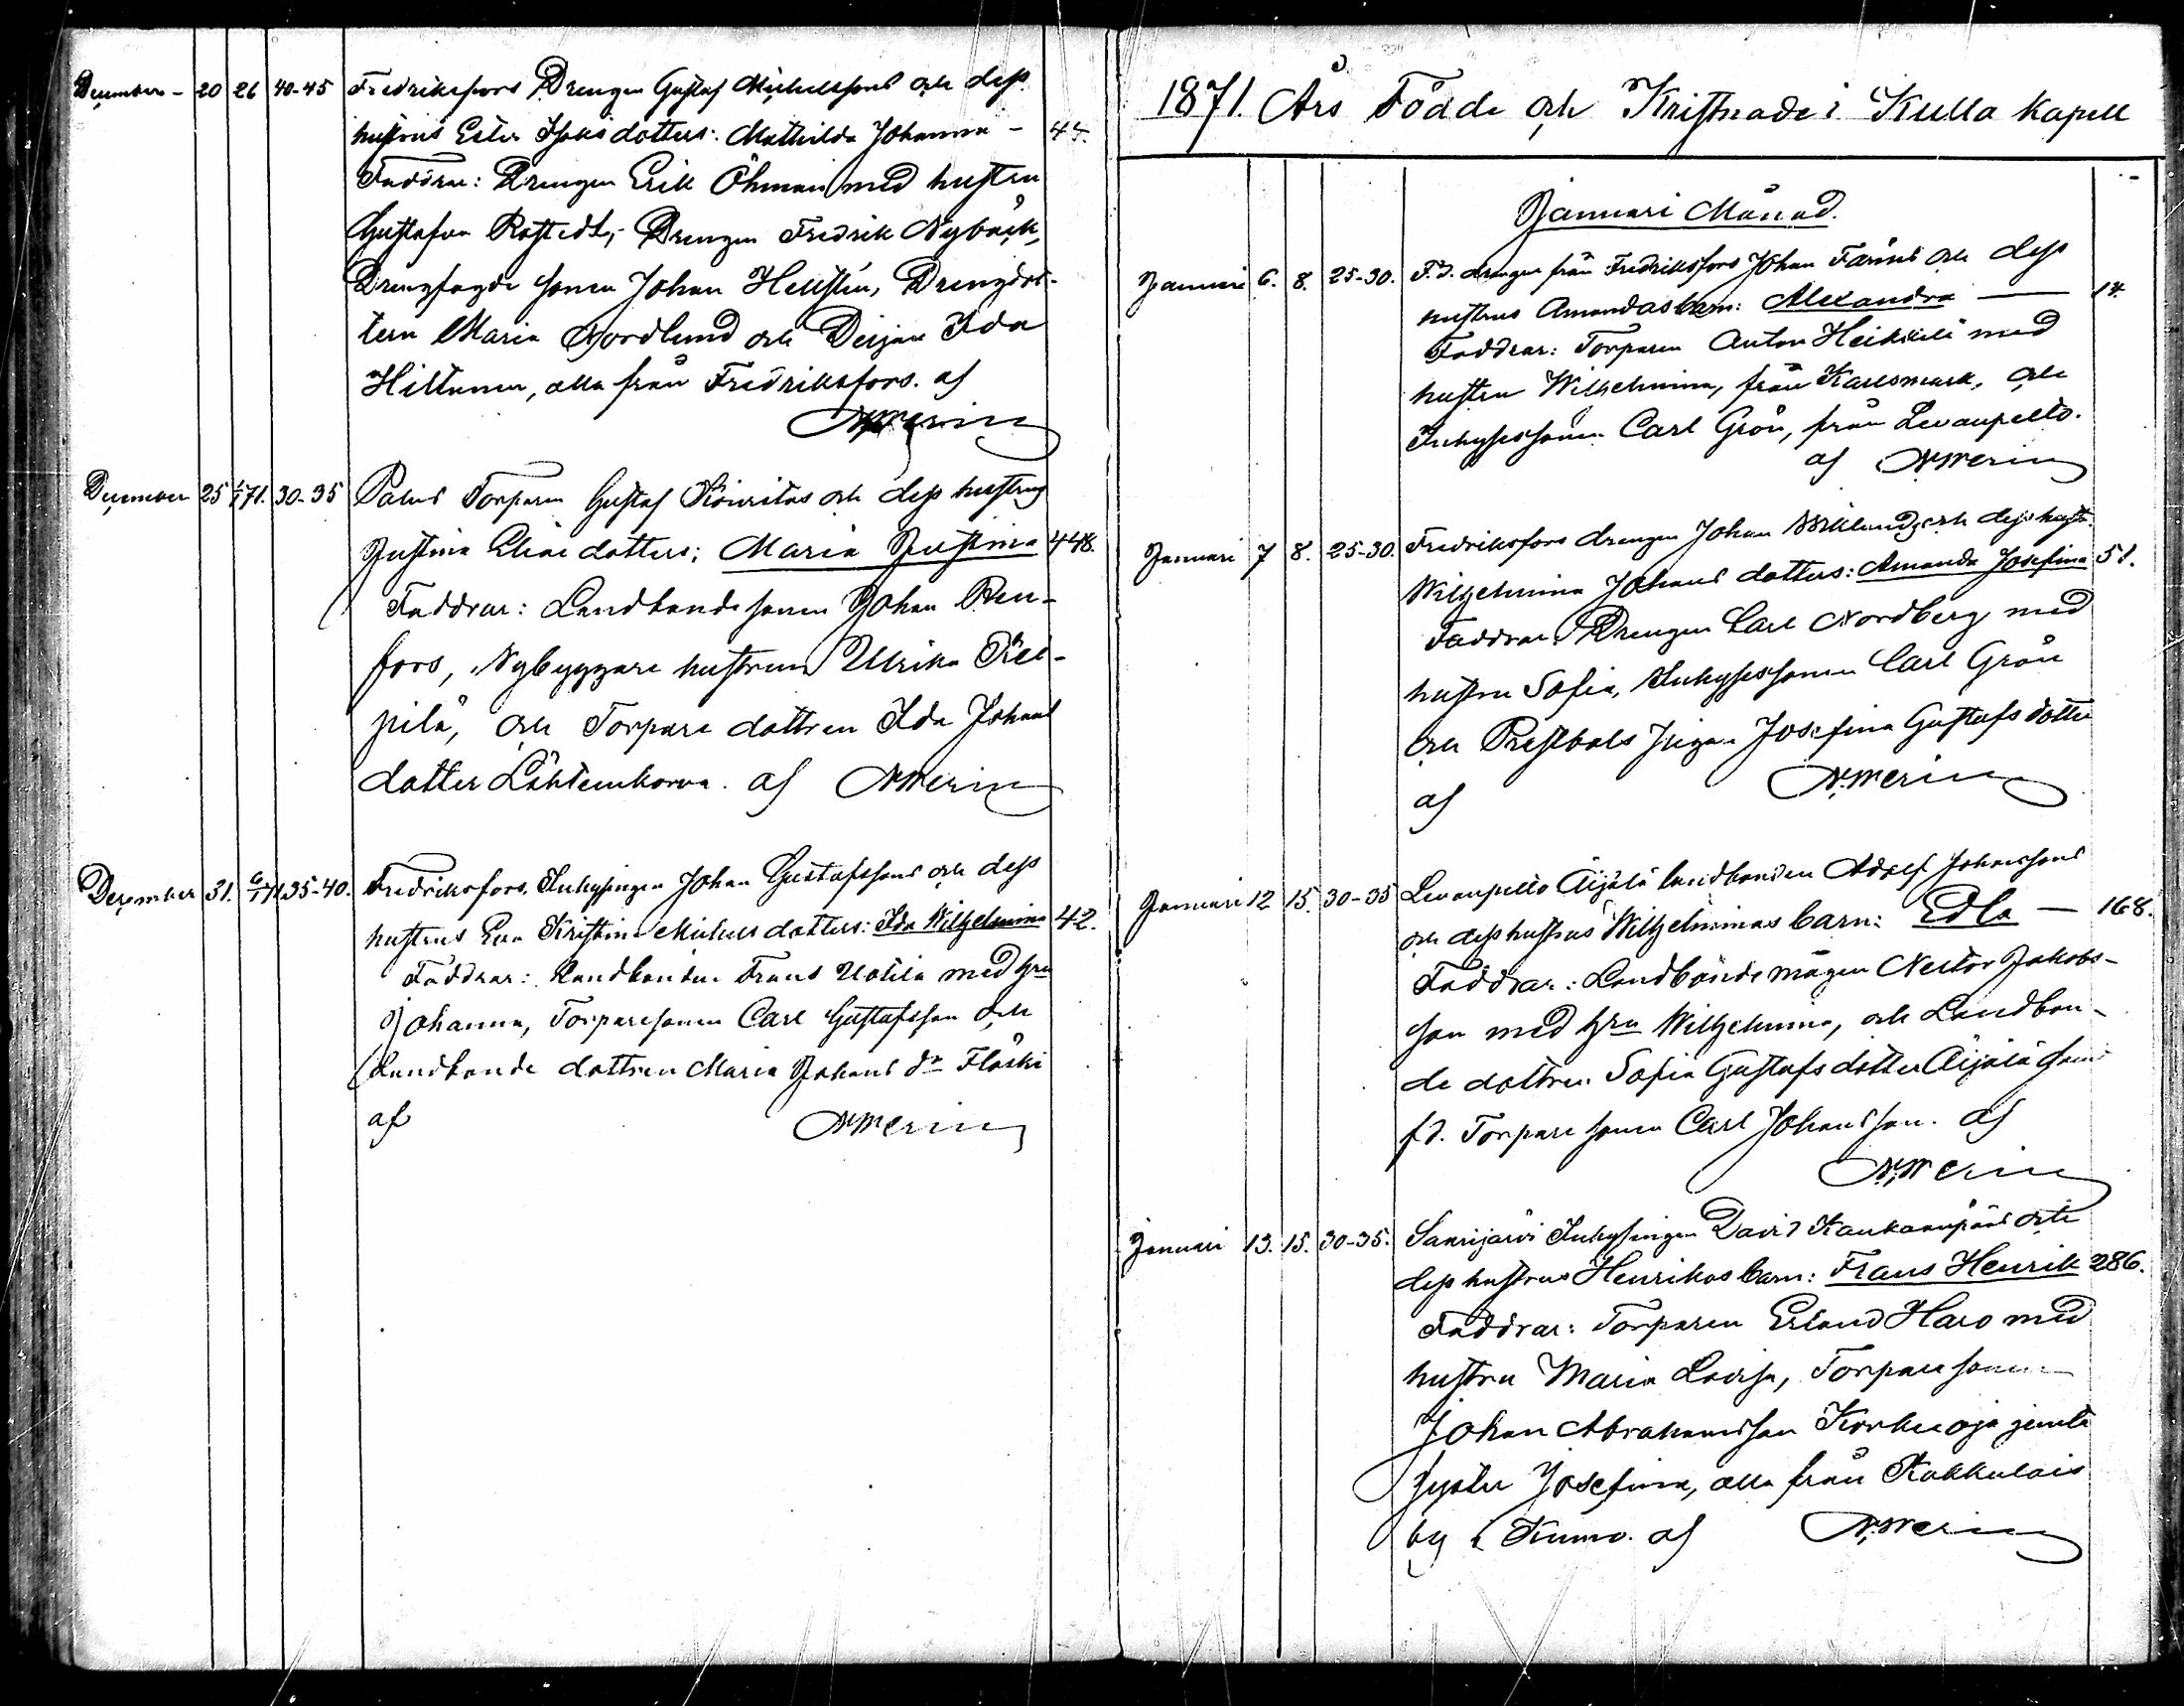 December - 20 26 40-45 Fredriksfors Drengen Gustaf Michelssons och dess
hustrus Ester Isaks dotters: Mathilda Johanna - 44.
Faddrar: Drengen Erik Öhman med hustru
Gustafva Rostedt, Drengen Fredrik Nybäck,
Drengfogde sonen Johan Hellstén, Drengdot-
tern Maria Nordlund och Deijan Ida
Hiltunen, alla från Fredriksfors. af
N Merin
December 25 1/1 71. 30-35 Palus Torparen Gustaf och dess hustrus
Justina Elias dotters; Maria Justina 448.
Faddrar: Landbonde sonen Johan Ren-
fors, Nybyggare hustrun Ulrika
pilä, och Torpare dottren Ida Johans
dotter Lähteenkorva. af N Merin
December 31. 6/1 71 35-40. Fredriksfors. Inhysingen Johan Gustafssons och dess
hustrus Eva Kristina Michels dotters: Ida Wilhelmina 42.
Faddrar: Landbonden Frans Uotila med hru
Johanna, Torparesonen Carl Gustafsson och
Landbonde dottren Maria Johans dr Fläski
af N Merin
1871. Års Födde och Kristnade i Kulla Kapell
Januari Månad.
Januari 6. 8. 25-30. F.d. drengen från Fredriksfors Johan Färms och dess
hustrus Amandas barn: Alexandra — 14.
Faddrar: Torparen Anton Heikkilä med
hustru Wilhelmina, från Karlsmark, och
Inhysessonen Carl Grön, från Levanpelto.
af N Merin
Januari 7 8. 25-30. Fredriksfors drengen Johan Wiklunds och dess hustr.
Wilhelmina Johans dotters: Amanda Josefina 51.
Faddrar: Drengen Carl Nordberg med
hustru Sofia, Inhysessonen Carl Grön
och Prestbols pigan Josefina Gustafs dotter
af N. Merin
Januari 12 15. 30-35 Levanpelto Äijälä landbonden Adolf Johanssons
och dess hustrus Wilhelminas barn: Edla — 168.
Faddrar: Landbonde mågen Nestor Jakobs-
son med hru Wilhelmina, och Landbon-
de dottren Sofia Gustafs dotter Äijälä samt
f.d. Torpare sonen Carl Johansson. af
N. Merin
Januari 13. 15. 30-35. Saarijärvi Inhysingen David Kankaanpääs och
dess hustrus Henrikas barn: Frans Henrik 286.
Faddrar: Torparen Erland Haro med
hustru Maria Lovisa, Torpare sonen
Johan Abrahamsson Korkeaoja jemte
syster Josefina, alla från Kakkulais
by i Kumo. af N. Merin